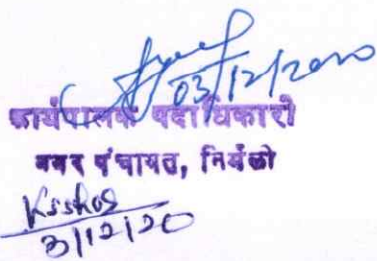 03/12/2020
कार्यपालक पदाधिकारी
नगर पंचायत, निर्मली
3/12/20